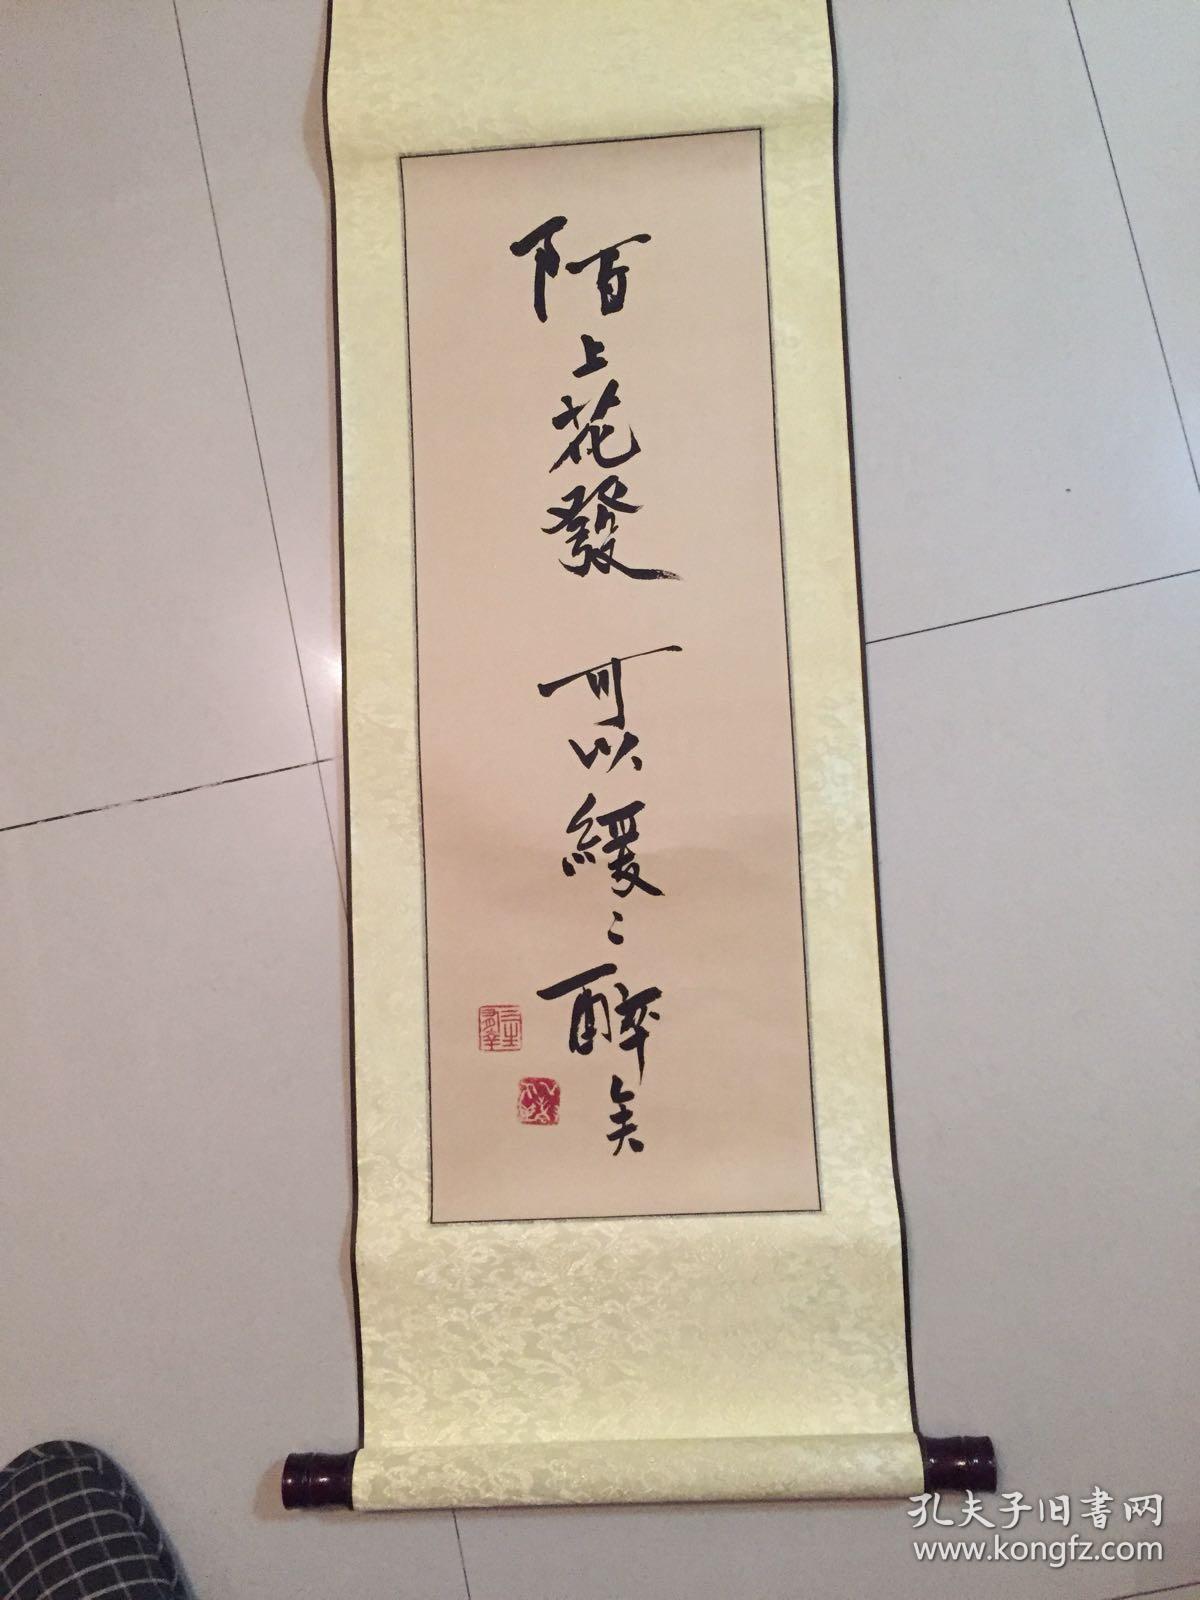 陌上花發可以緩〻醉矣
孔夫子旧书网
www.kongfz.com